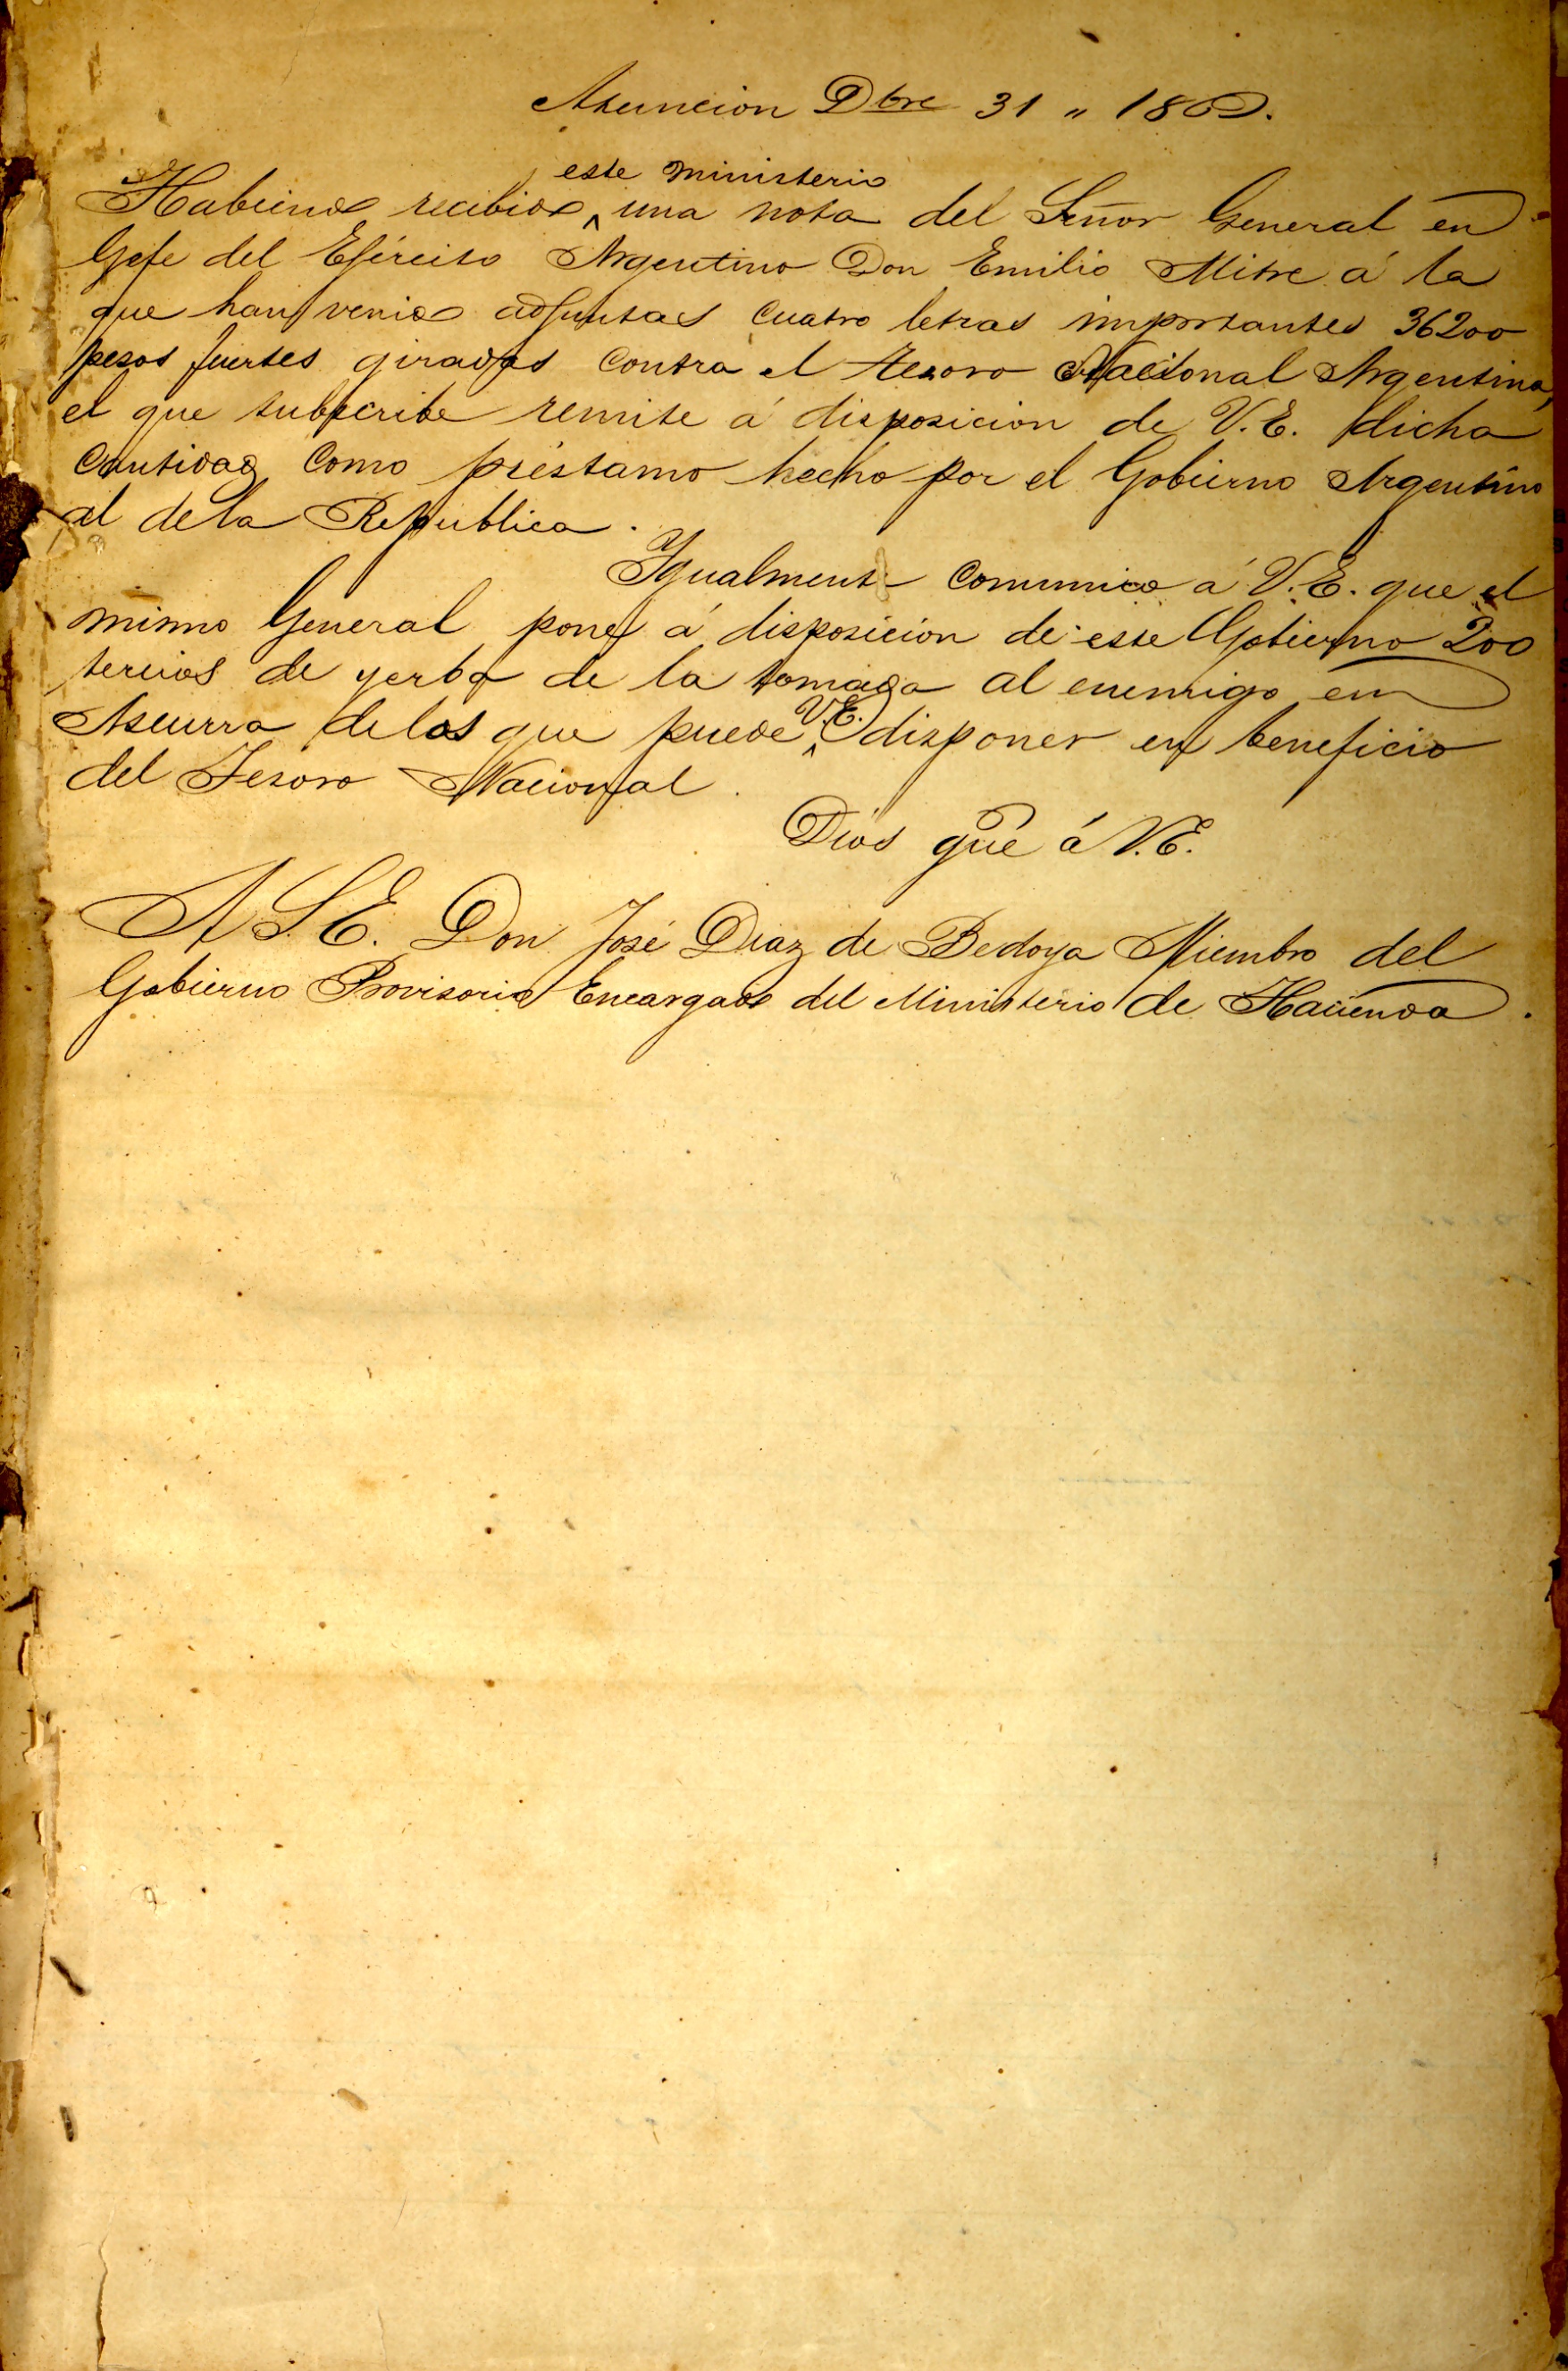 Asuncion Dbre 31 " 1869.
este ministerio
Habiendo recibido ^ una nota del Señor General en
Gefe del Ejército Argentino Don Emilio Mitre á la
que han venido adjuntas cuatro letras importantes 36200
pesos fuertes giradas contra el tesoro Nacional Argentino,
el que subscribe remite á disposicion de V.E. dicha
cantidad como préstamo hecho por el Gobierno Argentino
al dela Republica.
Igualmente comunico á V.E. que el
mismo General pone á disposicion de este Gobierno 200
tercios de yerba de la tomada al enemigo en
V.E.
Ascurra delos que puede ^ disponer en beneficio
del Tesoro Nacional.
Dios gue á V.E.
A S.E. Don José Diaz de Bedoya Miembro del
Gobierno Provisorio Encargado del Ministerio de Hacienda.